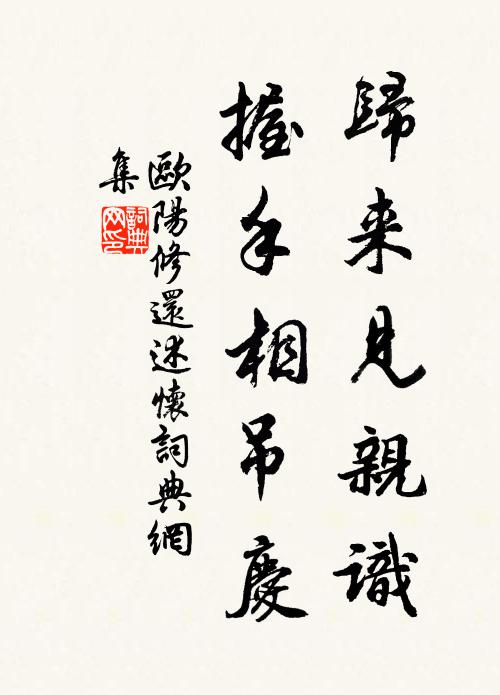 歸来見親識
握手相吊慶
歐陽修還述懷詞典網
集
詞典
网印